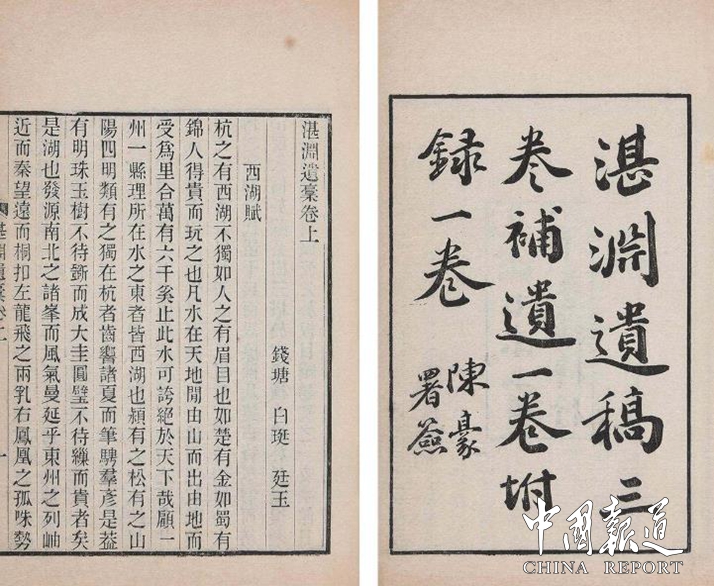 湛淵遺稿三
卷補遺一卷坿
録一卷
陳豪
署簽
湛淵遺稾卷上
錢塘 白珽 廷玉
西湖賦
杭之有西湖不獨如人之有眉目也如楚有金如蜀有
錦人得貴而玩之也凡水在天地閒由山而出由地而
受爲里合萬有六千奚止此水可誇絕於天下哉顧一
州一縣理所在水之東者皆西湖也潁有之松有之山
陽四明類有之獨在杭者齒諸夏而筆騁羣彥是葢
有明珠玉樹不待斲而成大圭圓璧不待繅而貴者矣
是湖也發源南北之諸峯而風氣曼延乎東州之列岫
近而秦望遠而桐扣左龍飛之兩乳右鳳凰之孤咮勢
一
中國報道
CHINA REPORT